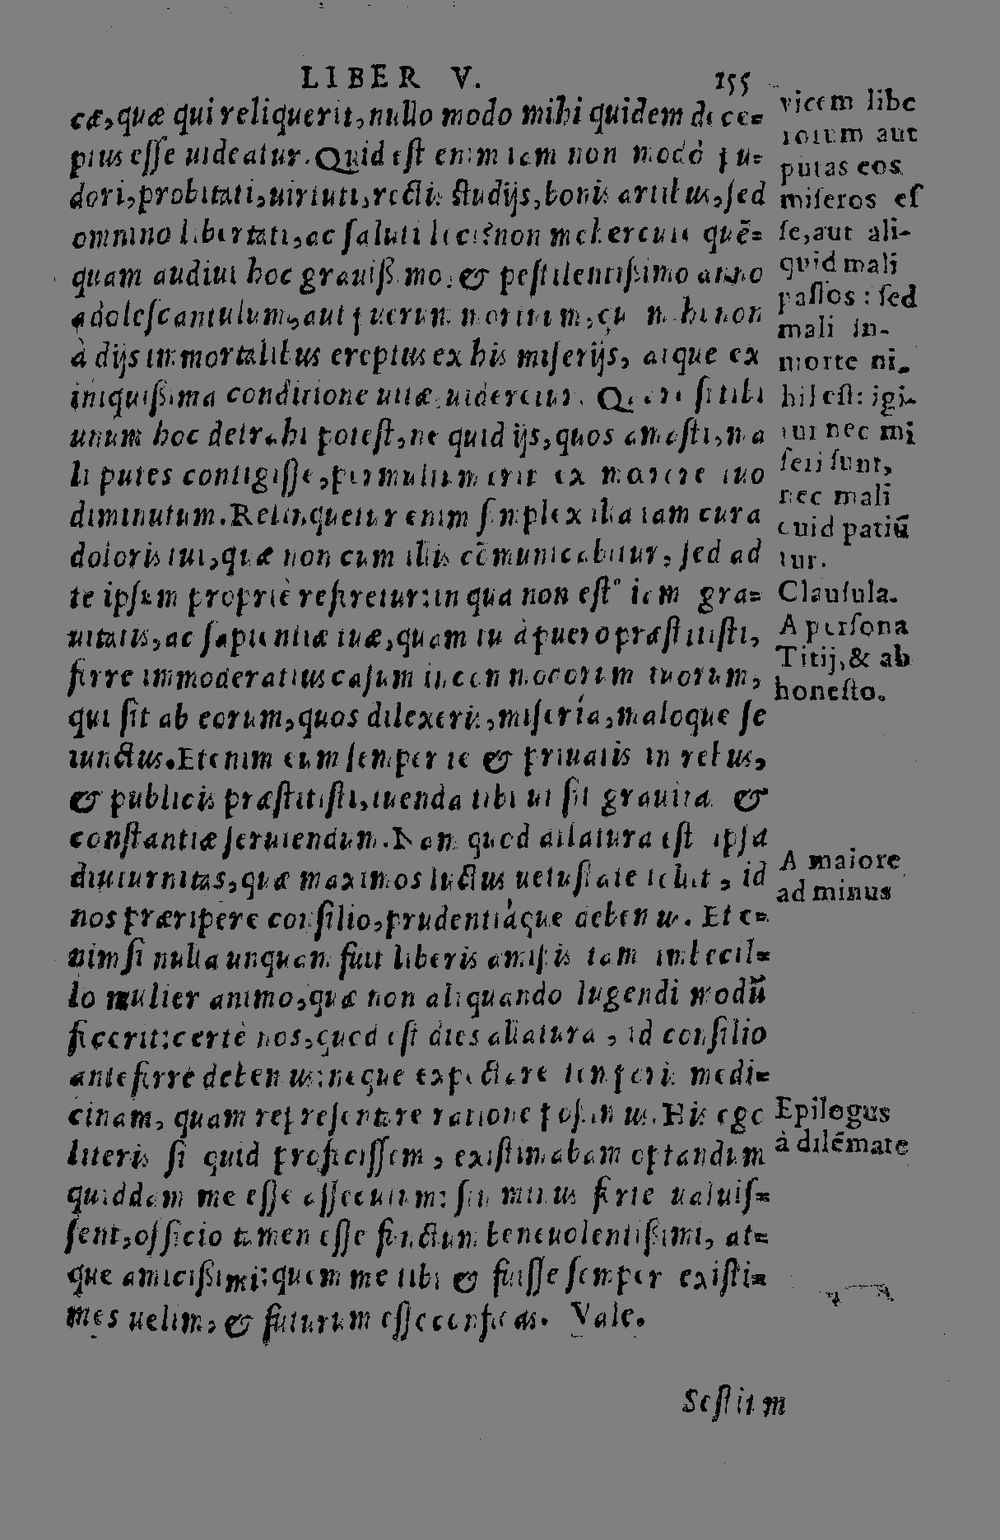 LIBER V. 155
cæ, quæ qui reliquerit, nullo modo mihi quidem dece=
ptus esse uideatur. Quid est enim iam non modò pu=
dori, probitati, uirtuti, rectis studijs, bonis artibus, sed
omnino libertati, ac saluti loci? non mehercule quē=
quam audiui hoc grauißimo, & pestilentißimo anno
adolescentulum, aut puerum mortuum, qui mihi non
à dijs immortalibus ereptus ex his miserijs, atque ex
iniquißima conditione uitæ uideretur. Quare si tibi
unum hoc detrahi potest, ne quid ijs, quos amasti, ma
li putes contigisse, permultum erit ex mœrore tuo
diminutum. Relinquetur enim simplex illa iam cura
doloris tui, quæ non cum illis cōmunicabitur, sed ad
te ipsum propriè refiretur: in qua non est iam gra=
uitatis, ac sapientiæ tuæ, quam tu à puero præstitisti,
ferre immoderatius casum incommodorum tuorum,
qui sit ab eorum, quos dilexeris, miseria, maloque se
iunctus. Etenim eum semper te & priuatis in rebus,
& publicis præstitisti, tuenda tibi ut sit grauitas &
constantiæ seruiendum. Nam quod allatura est ipsa
diuturnitas, quæ maximos luctus uetustate tollit, id
nos præripere consilio, prudentiáque debemus. Et e=
nim si nulla unquam fuit liberis amißis tam imbecil=
lo mulier animo, quæ non aliquando lugendi modū
fecerit: certè nos, quod est dies allatura, id consilio
anteferre debemus: neque expectare temporis medi=
cinam, quam repræsentare ratione possimus. His ego
literis si quid profecissem, existimabam optandum
quiddam me esse assecutum: sin minus forte ualuis=
sent, officio tamen esse functum beneuolentißimi, at=
que amicißimi: quem me tibi & fuisse semper existi=
mes uelim, & futurum esse confidas. Vale.
Sestium
vicem libe
rorum aut
putas eos
miseros es
se, aut ali-
quid mali
passos: sed
mali in-
morte ni-
hil est: igi-
tur nec mi
seri sunt,
nec mali
quid patiū
tur.
Clausula.
A persona
Titij, & ab
honesto.
A maiore
ad minus
Epilogus
à dilēmate